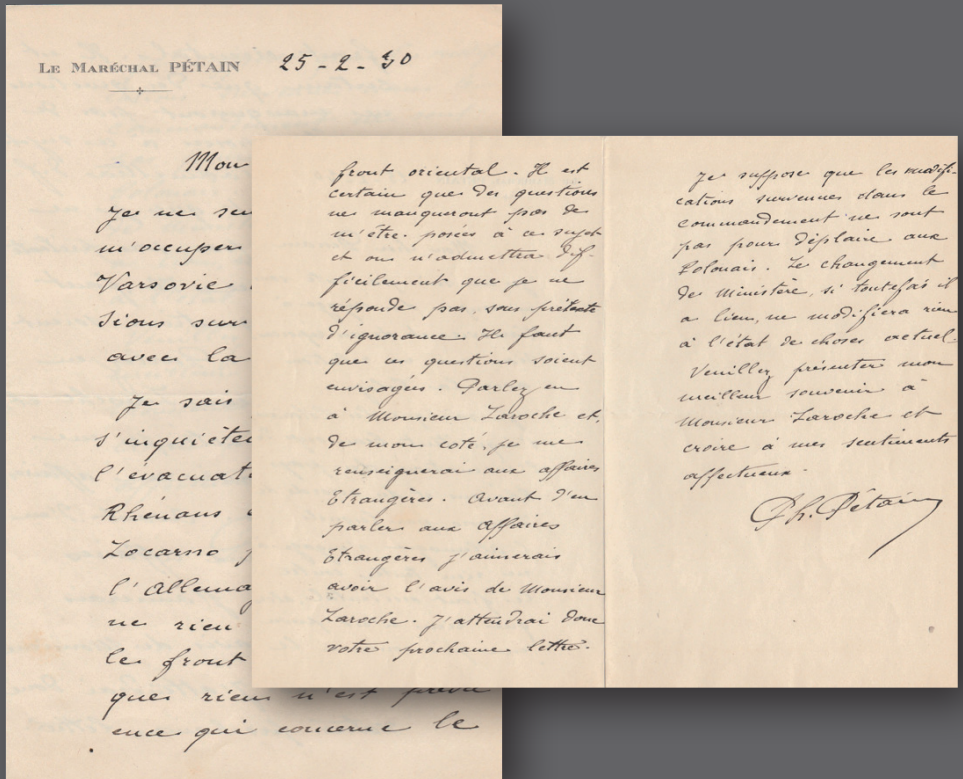 LE MARÉCHAL PÉTAIN
25-2-30
Mon
Je ne
m'occuper
Varsovie
sions sur
avec la
Je sais
s'inquiéte
l'évacuat
Rhénans
Locarno
l'Allema
ne rien
le front
ques rien n'est prévu
ence qui concerne le
front oriental. Il est
certain que des questions
ne manqueront pas de
m'être posées à ce sujet
et on n'admettra dif-
ficilement que je ne
réponde pas, sous prétexte
d'ignorance. Il faut
que ces questions soient
envisagées. Parlez en
à Monsieur Laroche et,
de mon coté, je me
renseignerai aux affaires
Etrangères. Avant d'en
parler aux Affaires
Etrangères j'aimerais
avoir l'avis de Monsieur
Laroche. J'attendrai donc
votre prochaine lettre.
Je suppose que les modifi-
cations survenues dans le
commandement ne sont
pas pour déplaire aux
Polonais. Le changement
de Ministère, si toutefois il
a lieu, ne modifiera rien
à l'état de choses actuel.
Veuillez présenter mon
meilleur souvenir à
Monsieur Laroche et
croire à mes sentiments
affectueux.
Ph. Pétain